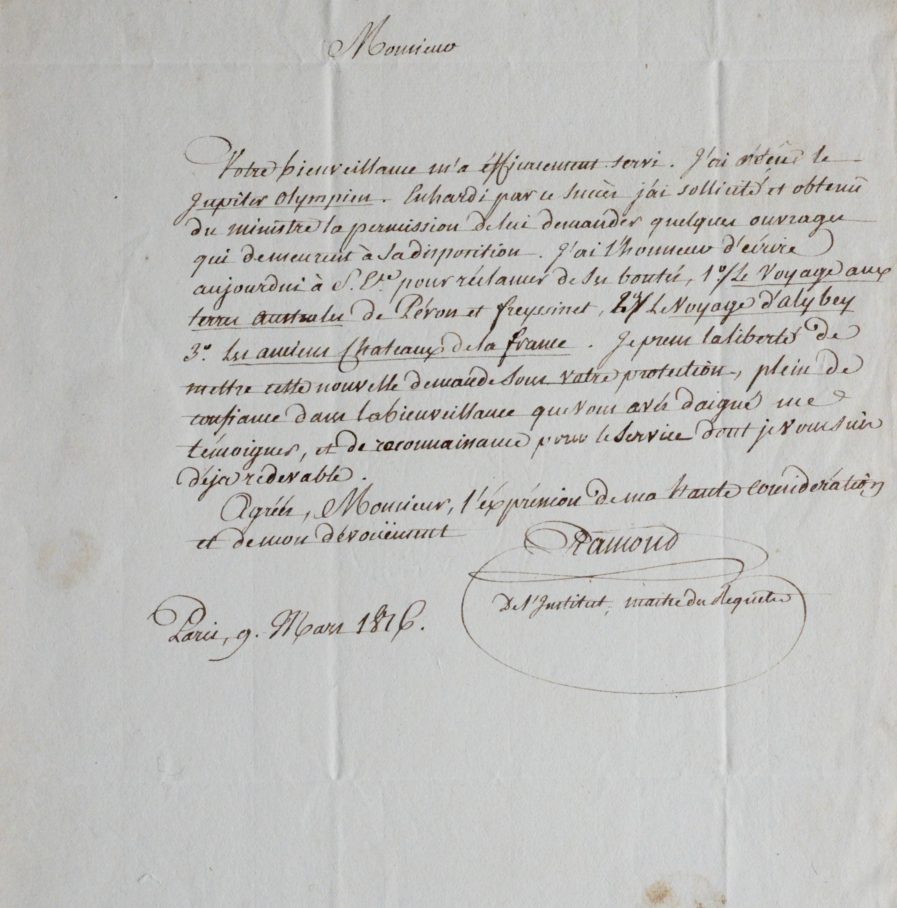 Monsieur
Votre bienveillance m'a éfficasement servi. J'ai obtenu le
Jupiter Olympien. Enhardi par ce succès j'ai sollicité et obtenu
du ministre la permission de lui demander quelques ouvrages
qui demeurent à sa disposition. J'ai l'honneur d'écrire
aujourdui à S. Ece. pour réclamer de ses bontés, 1º/ Le Voyage aux
terres australes de Péron et freyssinet, 2º/ Le Voyage d'alybey
3º. Les anciens Chateaux de la france. Je prens la liberté de
mettre cette nouvelle demande sous votre protection, plein de
confiance dans la bienveillance que vous avés daigné me
témoigner, et de reconnaissance pour le service dont je vous suis
déja redevable.
Agréés, Monsieur, l'expression de ma haute considération
et de mon dévouëment
Ramond
De l'Institut, maitre des Requêtes
Paris, 9. Mars 1826.